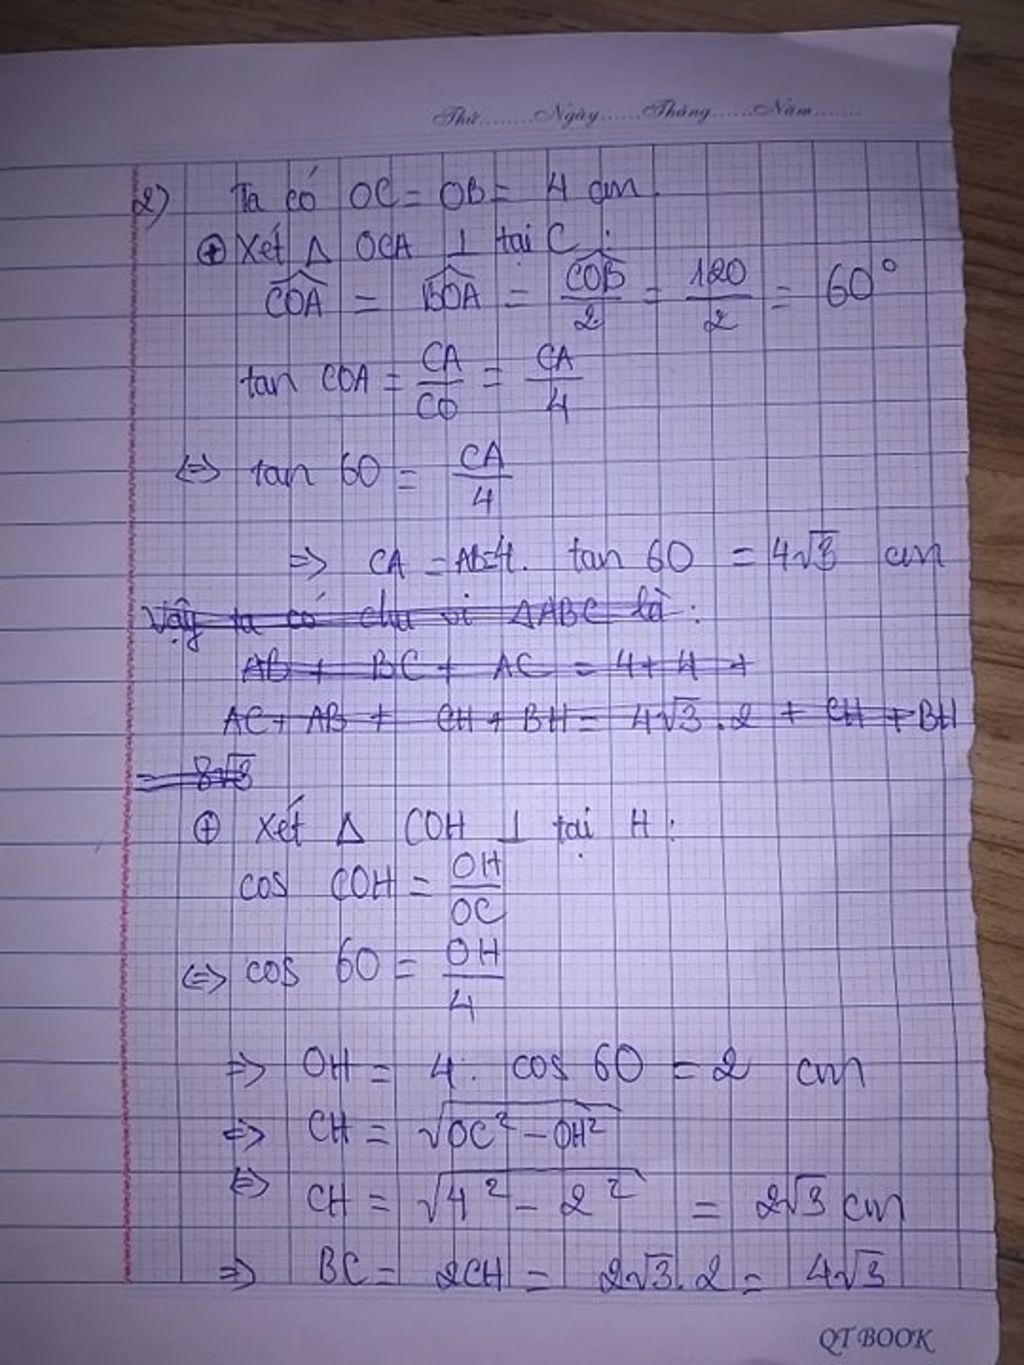 Thứ........Ngày......Tháng......Năm.......
2) Ta có OC = OB = 4 cm.
⊕ Xét Δ OCA ⊥ tại C :
COA = BOA = COB/2 = 120/2 = 60°
tan COA = CA/CO = CA/4
<=> tan 60 = CA/4
=> CA = AB=4. tan 60 = 4√3 cm
Vậy ta có chu vi ΔABC là :
AB + BC + AC = 4 + 4 +
AC + AB + CH + BH = 4√3 . 2 + CH + BH
= 8√3
⊕ Xét Δ COH ⊥ tại H :
cos COH = OH/OC
<=> cos 60 = OH/4
=> OH = 4. cos 60 = 2 cm
=> CH = √OC² - OH²
<=> CH = √4² - 2² = 2√3 cm
=> BC = 2CH = 2√3.2 = 4√3
QT BOOK